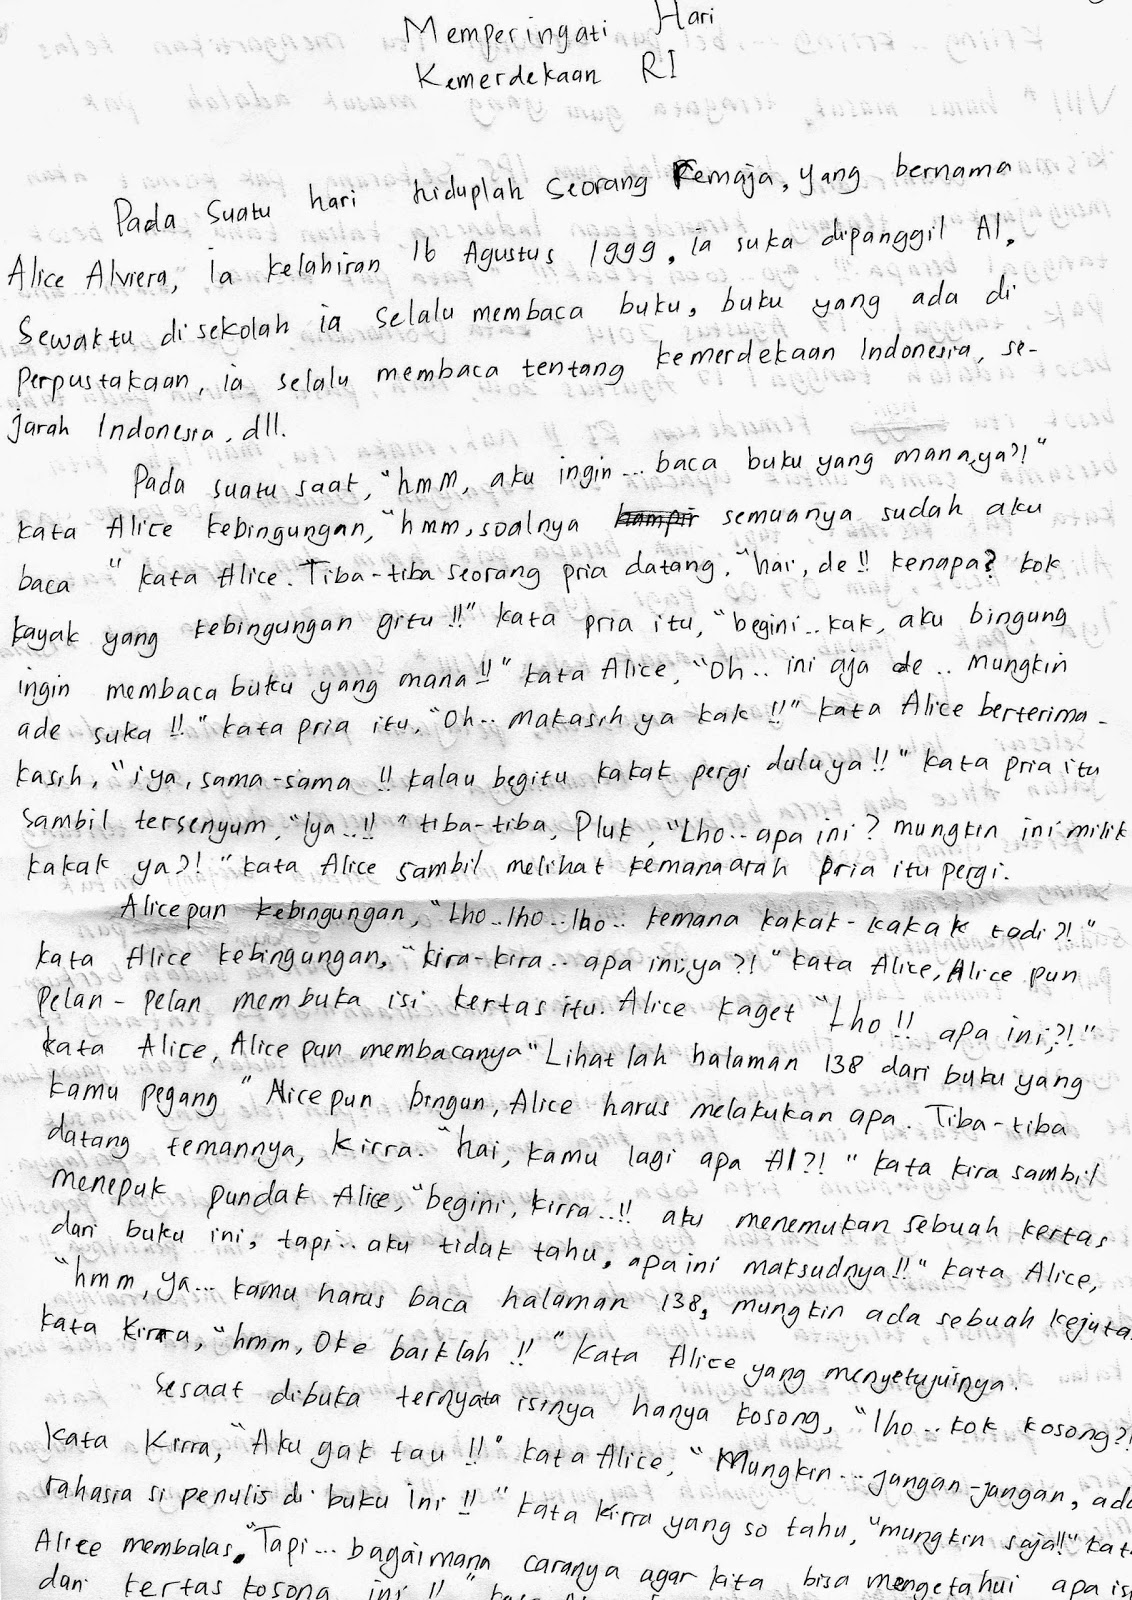 Memperingati Hari
Kemerdekaan RI
Pada suatu hari hiduplah seorang Remaja, yang bernama
Alice Alviera, ia kelahiran 16 Agustus 1999, ia suka dipanggil Al,
Sewaktu disekolah ia selalu membaca buku, buku yang ada di
Perpustakaan, ia selalu membaca tentang kemerdekaan Indonesia, se-
jarah Indonesia, dll.
Pada suatu saat, "hmm, aku ingin... baca buku yang mana,ya?!"
kata Alice kebingungan, "hmm, soalnya hampir semuanya sudah aku
baca" kata Alice. Tiba-tiba seorang pria datang, "hai, de!! kenapa? kok
kayak yang kebingungan gitu!!" kata pria itu, "begini.. kak, aku bingung
ingin membaca buku yang mana!!" kata Alice, "Oh.. ini aja de.. mungkin
ade suka!!" kata pria itu, "Oh.. makasih ya kak!!" kata Alice berterima-
kasih, "iya, sama-sama!! kalau begitu kakak pergi dulu ya!!" kata pria itu
sambil tersenyum, "Iya..!!" tiba-tiba, Pluk, "Lho.. apa ini? mungkin ini milik
kakak ya?!" kata Alice sambil melihat kemana arah pria itu pergi.
Alice pun kebingungan, "Lho..lho..lho.. kemana kakak-kakak tadi?!"
kata Alice kebingungan, "kira-kira.. apa ini,ya?!" kata Alice, Alice pun
pelan-pelan membuka isi kertas itu. Alice kaget "Lho!! apa ini,?!"
kata Alice, Alice pun membacanya "Lihat lah halaman 138 dari buku yang
kamu pegang" Alice pun bingun, Alice harus melakukan apa. Tiba-tiba
datang temannya, Kirra. "hai, kamu lagi apa Al?!" kata kira sambil
menepuk pundak Alice, "begini, kirra..!! aku menemukan sebuah kertas
dari buku ini, tapi.. aku tidak tahu, apa ini maksudnya!!" kata Alice,
"hmm, ya... kamu harus baca halaman 138, mungkin ada sebuah kejuta
kata Kirra, "hmm, Oke baiklah!!" kata Alice yang menyetujuinya.
Sesaat dibuka ternyata isinya hanya kosong, "lho.. kok kosong?!
kata Kirra, "Aku gak tau!!" kata Alice, "Mungkin... jangan-jangan, ada
rahasia si penulis di buku ini!!" kata kirra yang so tahu, "mungkin saja!!" kat
Alice membalas, "Tapi... bagaimana caranya agar kita bisa mengetahui apa is
dari kertas kosong ini!!"